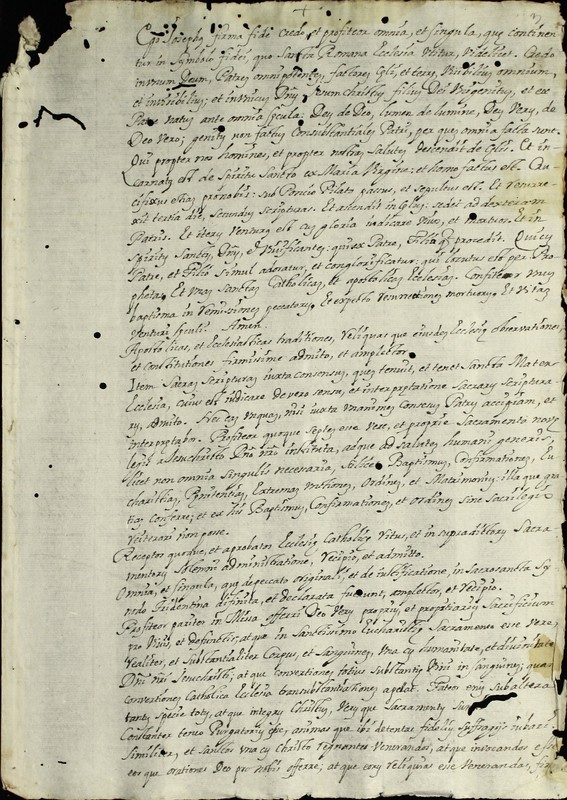 Ego Joseph, firma fide credo, et profiteor omnia, et singula, que continen
tur in symbolo fidei, quo Sancta Romana Ecclesia Utitur, Videlicet. Credo
in unum Deum, Patrem omnipotentem, factorem Celi, et terre, Visibilium omnium,
et invisibilium; et in Unicum Dnm Jesum christum filium Dei Unigenitum, et ex
Patre natum ante omnia secula; Deum de Deo, lumen de lumine, Deum Verum, de
Deo Vero; genitum non factum Consubstantialem Patri, per quem omnia facta sunt.
Qui propter nos homines, et propter nostram salutem descendit de Celis. Et in
carnatus est de Spiritu Sancto ex Maria Virgine: et homo factus est. Cru
cifixus etiam pro nobis: sub Poncio Pilato passus, et sepultus est. Et resurre
xit tertia die, secundum scripturas. Et ascendit in Celum: sedet ad dexteram
Patris. Et iterum Venturus est cum gloria iudicare Vivos, et mortuos. Et in
Spiritum Sanctum, Dnm, et Vivificantem: qui ex Patre, Filioque procedit. Qui cum
Patre, et Filio simul adoratur, et conglorificatur: qui locutus est per Pro
phetas. Et Unam Sanctam Catholicam, et apostolicam Ecclesiam. Confiteor Unum
baptisma in remissionem peccatorum. Et expecto resurrectionem mortuorum. Et Vitam
Venturi seculi. Amen.
Apostolicas, et Ecclesiasticas traditiones, reliquas que eiusdem Ecclesie observationes,
et constitutiones firmissime admito, et amplector.
Item Sacram Scripturam iuxta consensum, quem tenuit, et tenet Sancta Mater
Ecclesia, cuius est indicare de vero sensu, et interpretatione Sacrarum Scriptura
rum, admito. Nec eam unquam, nisi iuxta Unanimem Consensum Patrum accipiam, et
interpretabor. Profiteor quoque Septem esse Vere, et proprie Sacramenta novae
legis a Jesuchristo Dno nro instituta, atque ad salutem humani generis,
licet non omnia singulis necessaria, scilicet Baptismum, Confirmationem, Eu
charistiam, Penitentiam, Extremam Unctionem, Ordinem, et Matrimonium: illa que gra
tiam Conferre; et ex his Baptismum, Confirmationem, et ordinem sine Sacrilegio
reiterari non posse.
Receptos quoque, et aprobatos Ecclesie Catholice ritus, et in supradictorum Sacra
mentorum solemni administratione, recipio, et admitto.
Omnia, et singula, que de peccato originali, et de iustificatione, in sacrosancta Sy
nodo Tridentina difinita, et declarata fuerunt, amplector, et recipio.
Profiteor pariter in Missa offerri Deo Verum proprium, et propitiatorium Sacrificium
pro Vivis, et defunctis; atque in Santissimo Eucharistie Sacramento esse Vere,
realiter, et substantialiter Corpus, et Sanguinem, Una cum humanitate, et divinitate
Dni nri Jesuchristi; atque conversionem totius substantie Vini in sanguinem; quam
conversionem Catholica Eclesia transubstantiationem apelat. Fateor etiam sub altera
tantum specie totum, atque integrum Christum, Verumque Sacramentum
Constanter teneo Purgatorium esse, animas que ibi detentas fidelium suffragijs iubari.
Similiter, et Sanctos Una cum Christo regnantes Venerandos, atque invocandos esse
eos que orationes Deo pro nobis offerre; atque eorum reliquias esse Venerandas,